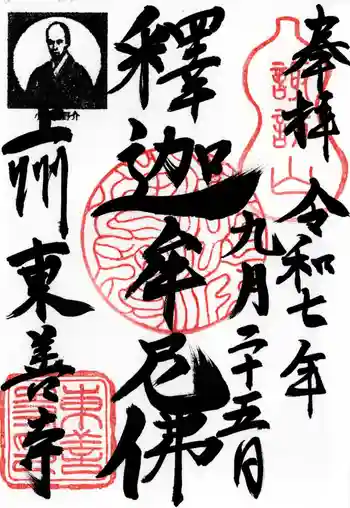 奉拝 令和七年
諏訪山
九月二十五日
釋迦牟尼佛
上州 東善寺
東善